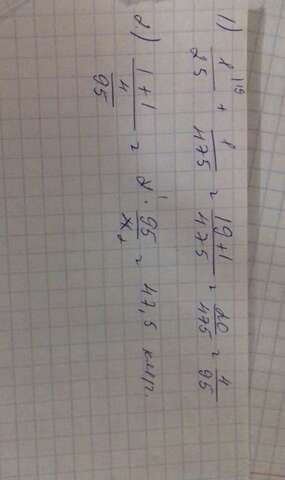 1) 1^{19}/25 + 1/475 = 19+1/475 = 20/475 = 4/95
2.) 1+1/(4/95) = 2 · 95/4 = 47,5 мин.